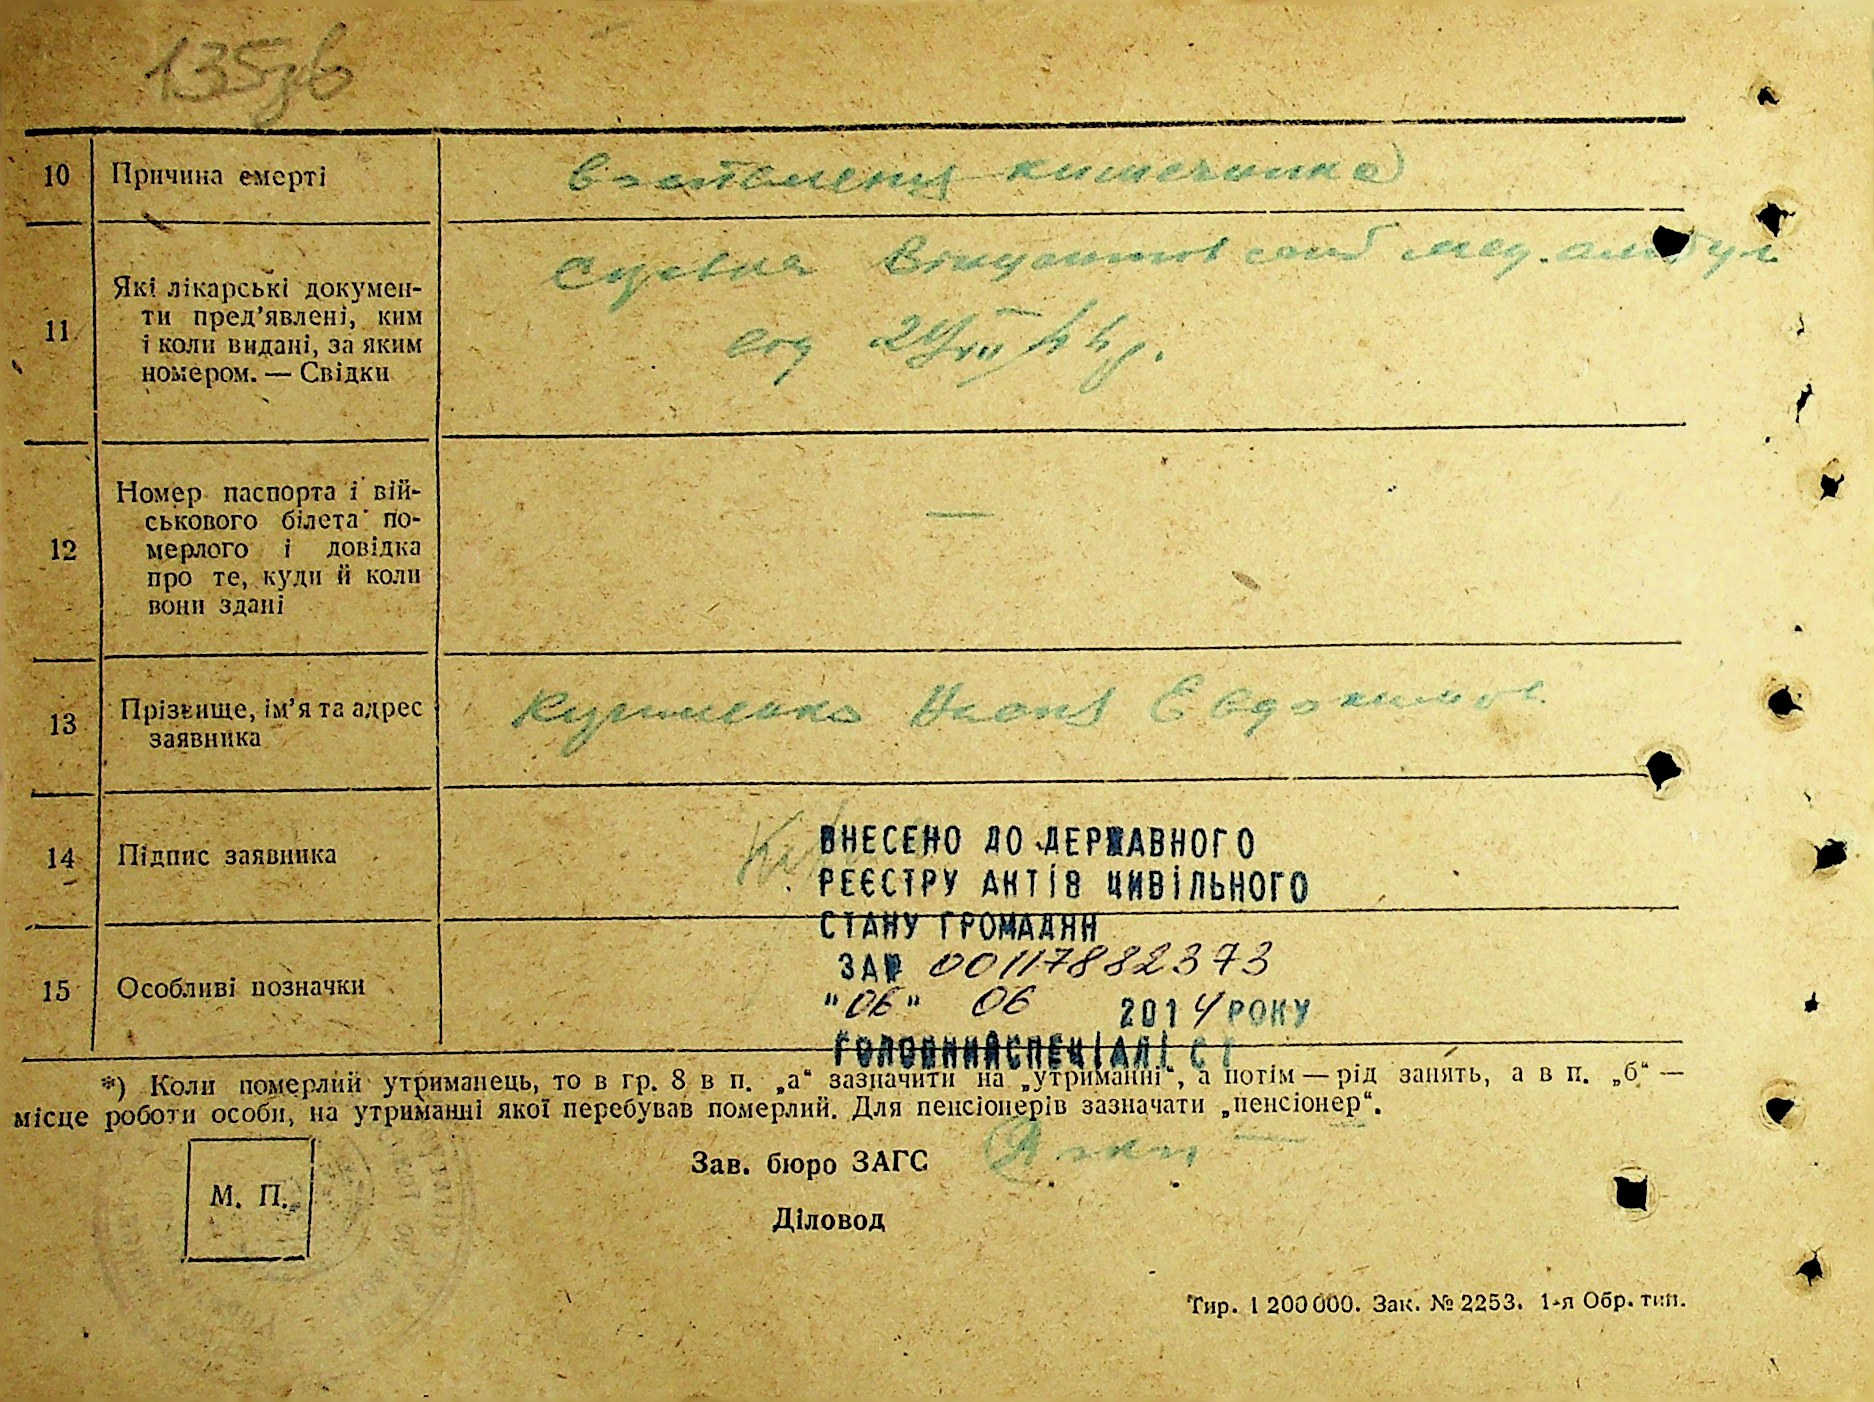 135зв
10 Причина смерті
кишечника
11 Які лікарські докумен-
ти пред’явлені, ким
і коли видані, за яким
номером. — Свідки
мед. амбул
12 Номер паспорта і вій-
ськового білета по-
мерлого і довідка
про те, куди й коли
вони здані
—
13 Прізвище, ім’я та адрес
заявника
Евдокимов
14 Підпис заявника
ВНЕСЕНО ДО ДЕРЖАВНОГО
РЕЄСТРУ АКТІВ ЦИВІЛЬНОГО
СТАНУ ГРОМАДЯН
ЗА№ 00117882373
15 Особливі позначки
"06" 06 2014 РОКУ
ГОЛОВНИЙ СПЕЦІАЛІСТ
*) Коли померлий утриманець, то в гр. 8 в п. „а“ зазначити на „утриманні“, а потім — рід занять, а в п. „б“ —
місце роботи особи, на утриманні якої перебував померлий. Для пенсіонерів зазначати „пенсіонер“.
Зав. бюро ЗАГС
М. П.
Діловод
Тир. 1 200 000. Зак. № 2253. 1-я Обр. тип.